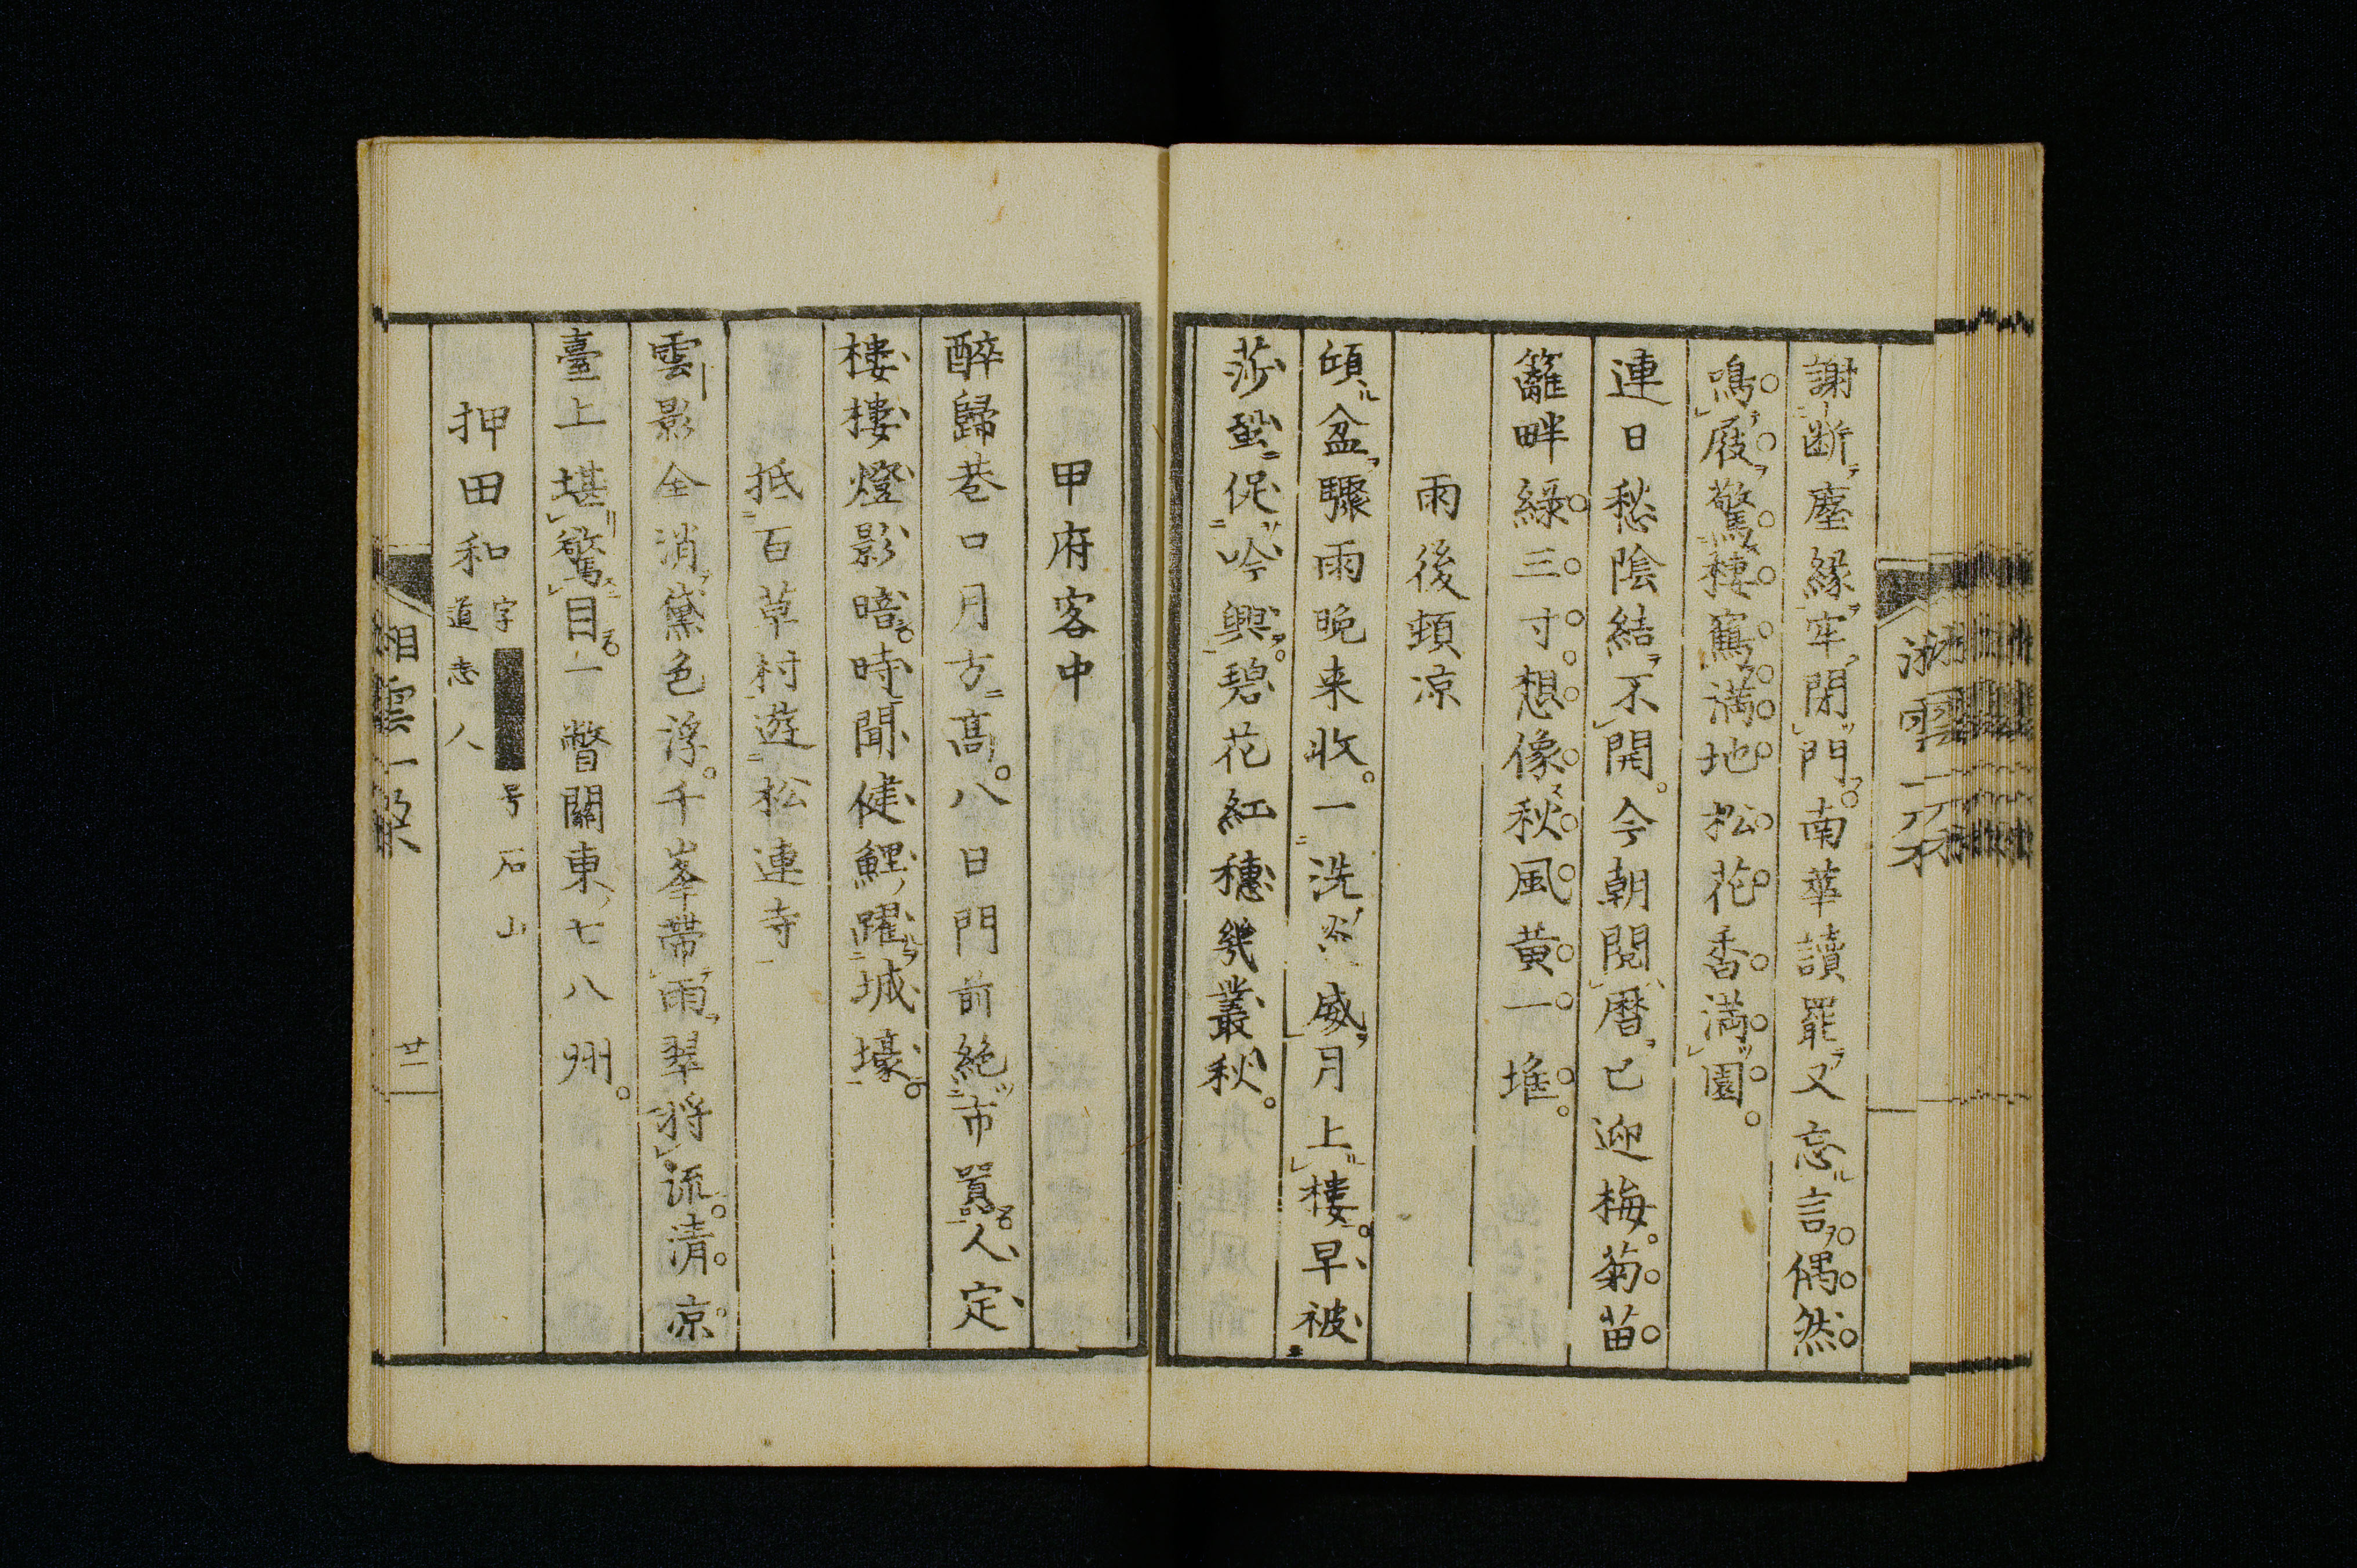 謝断塵緣牢閉門南華讀罷又忘言偶然
鳴屐驚棲窩満地松花香満園
連日愁陰結不開今朝閱暦已迎梅菊苗
籬畔綠三寸想像秋風黄一堆
雨後頓凉
傾盆驟雨晚来收一洗 威月上樓早被
莎蛩促吟興碧花紅穗幾叢秋
甲府客中
醉歸巷口月方高八日門前絶市囂人定
樓樓燈影暗時聞健鯉躍城壕
抵百草村遊松連寺
雲影全消黛色浮千峯帶雨翠将流清凉
臺上堪驚目一瞥關東七八州
押田和 字 号石山
道志人
湘雲一朶
廿一